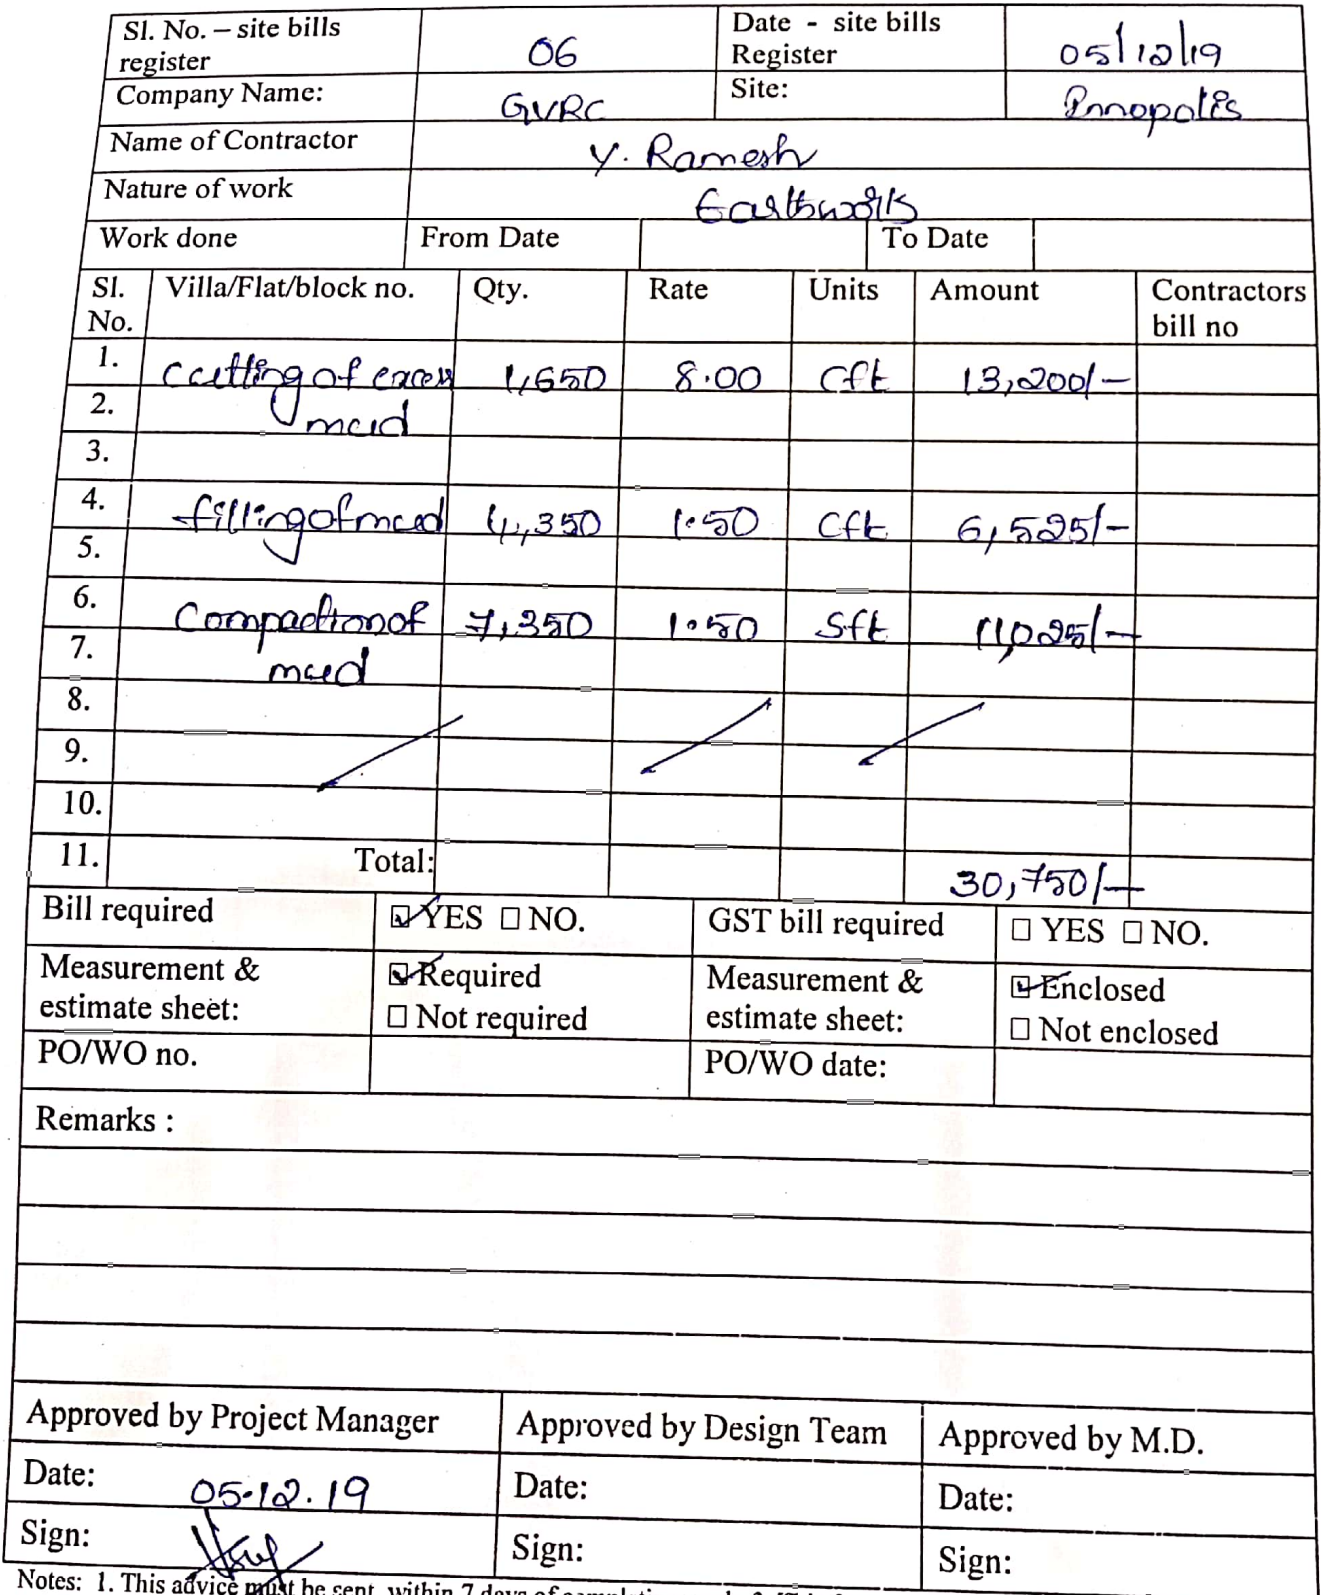 Sl. No. – site bills register 06 Date - site bills Register 05/12/19
Company Name: GVRC Site: Innopolis
Name of Contractor Y. Ramesh
Nature of work Earthwork
Work done From Date To Date
Sl. No. Villa/Flat/block no. Qty. Rate Units Amount Contractors bill no
1. Cutting of excess 1,650 8.00 Cft 13,200/-
2. mud
3.
4. filling of mud 4,350 1.50 Cft 6,525/-
5.
6. Compaction of 7,350 1.50 Sft 11,025/-
7. mud
8.
9.
10.
11. Total: 30,750/-
Bill required ☑ YES ☐ NO. GST bill required ☐ YES ☐ NO.
Measurement & estimate sheet: ☑ Required ☐ Not required Measurement & estimate sheet: ☑ Enclosed ☐ Not enclosed
PO/WO no. PO/WO date:
Remarks :
Approved by Project Manager Approved by Design Team Approved by M.D.
Date: 05.12.19 Date: Date:
Sign: Sign: Sign:
Notes: 1. This advice must be sent within 7 days of